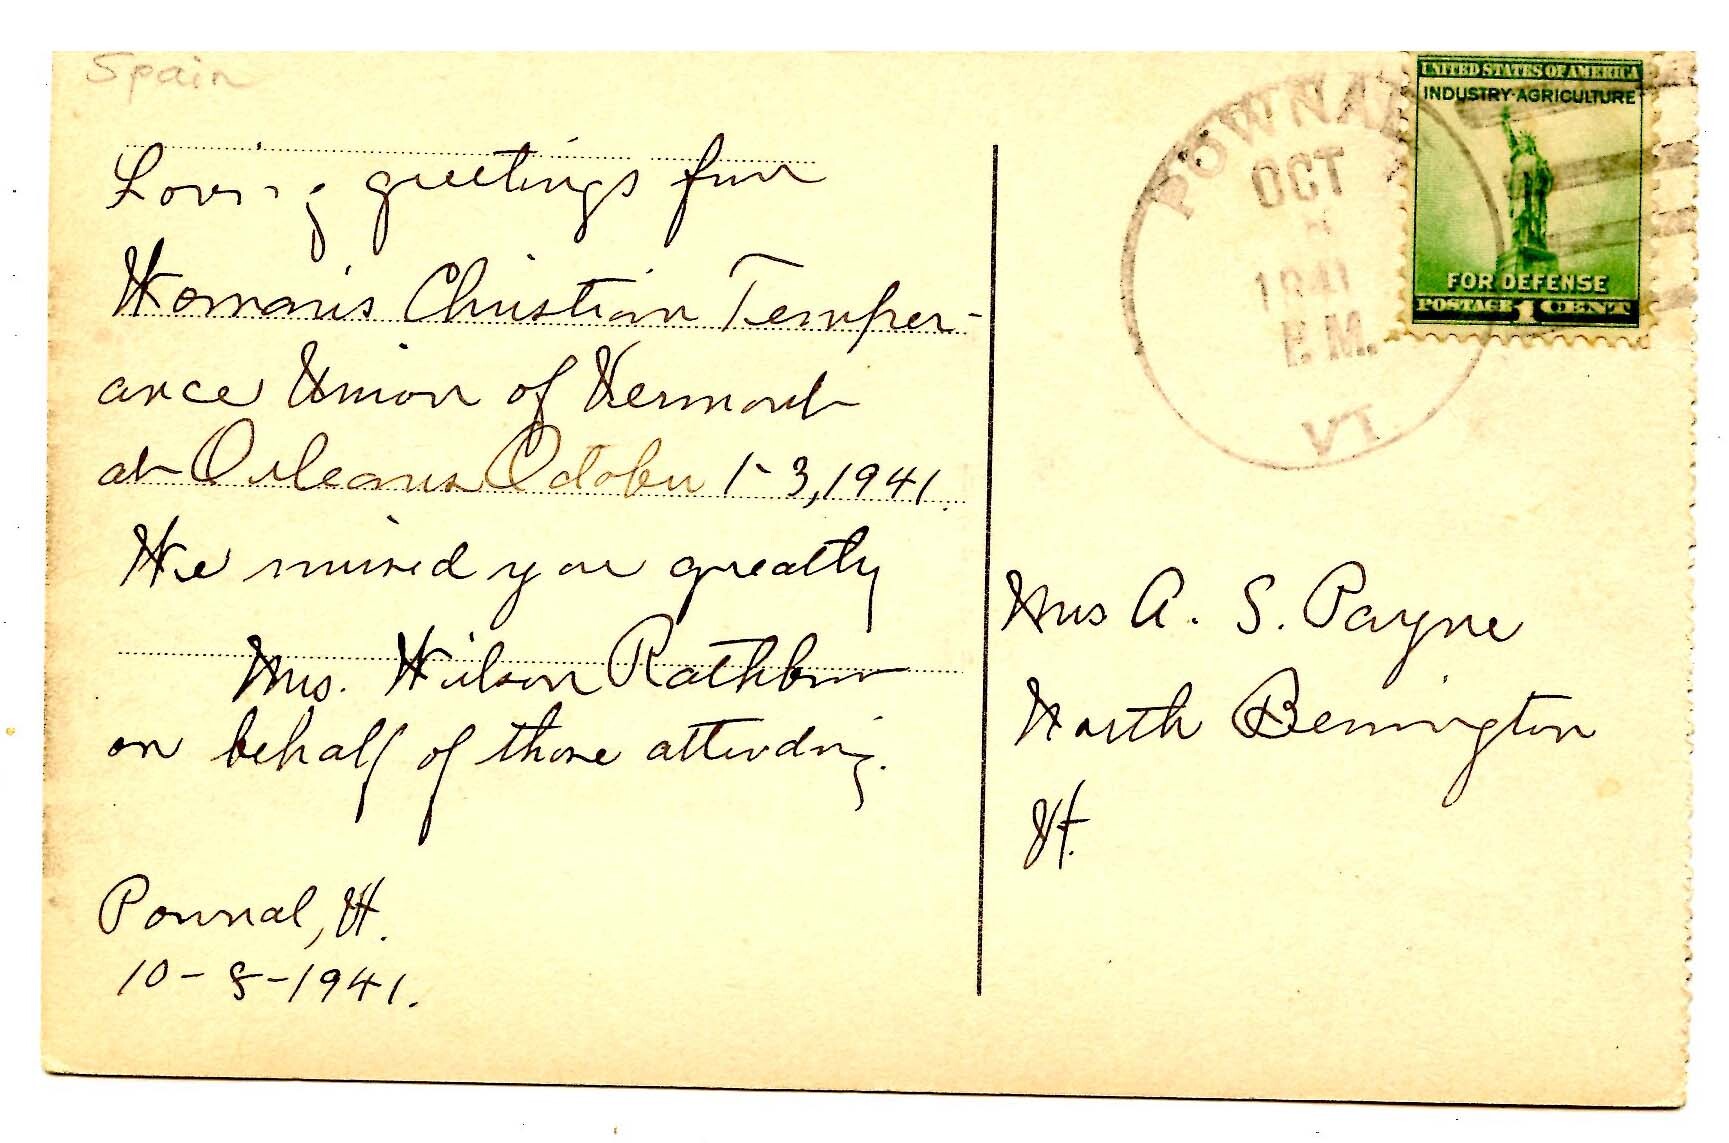 Spain
Loving greetings from
Woman's Christian Temper-
ance Union of Vermont
at Orleans October 1-3, 1941.
We missed you greatly
Mrs. Wilson Rathbun
on behalf of those attending.
Pownal, Vt.
10-8-1941.
POWNAL
OCT
1941
P.M.
VT
UNITED STATES OF AMERICA
INDUSTRY·AGRICULTURE
FOR DEFENSE
POSTAGE 1 CENT
Mrs A. S. Payne
North Bennington
Vt.